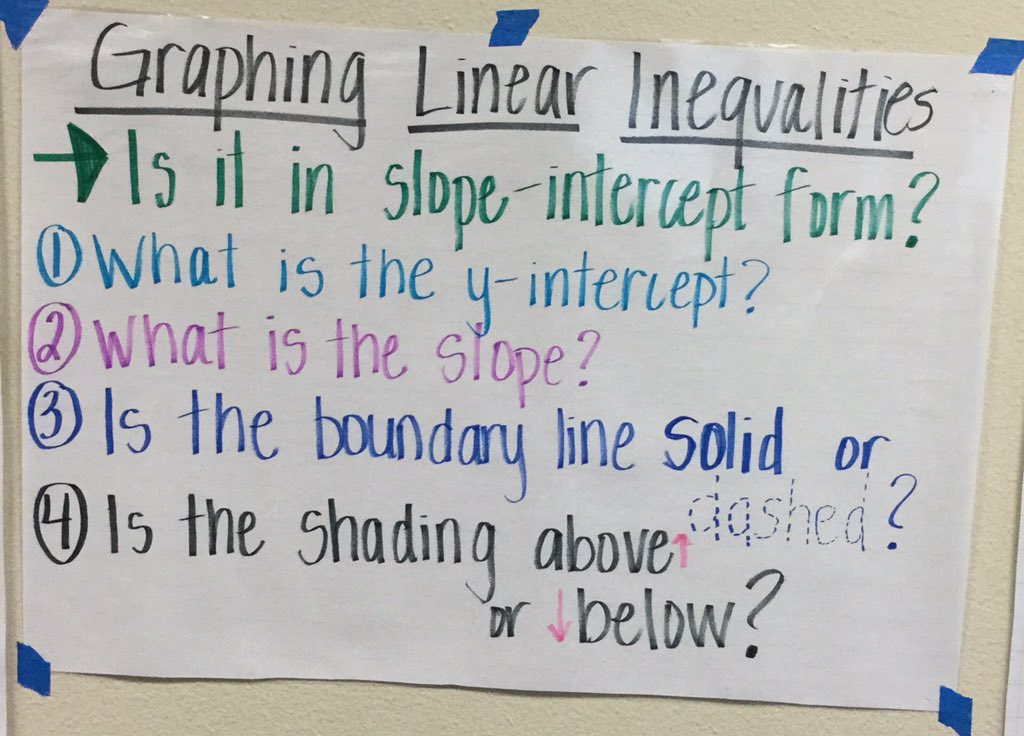 Graphing Linear Inequalities
→ Is it in slope-intercept form?
① What is the y-intercept?
② What is the slope?
③ Is the boundary line solid or
dashed?
④ Is the shading above ↑
or ↓ below?